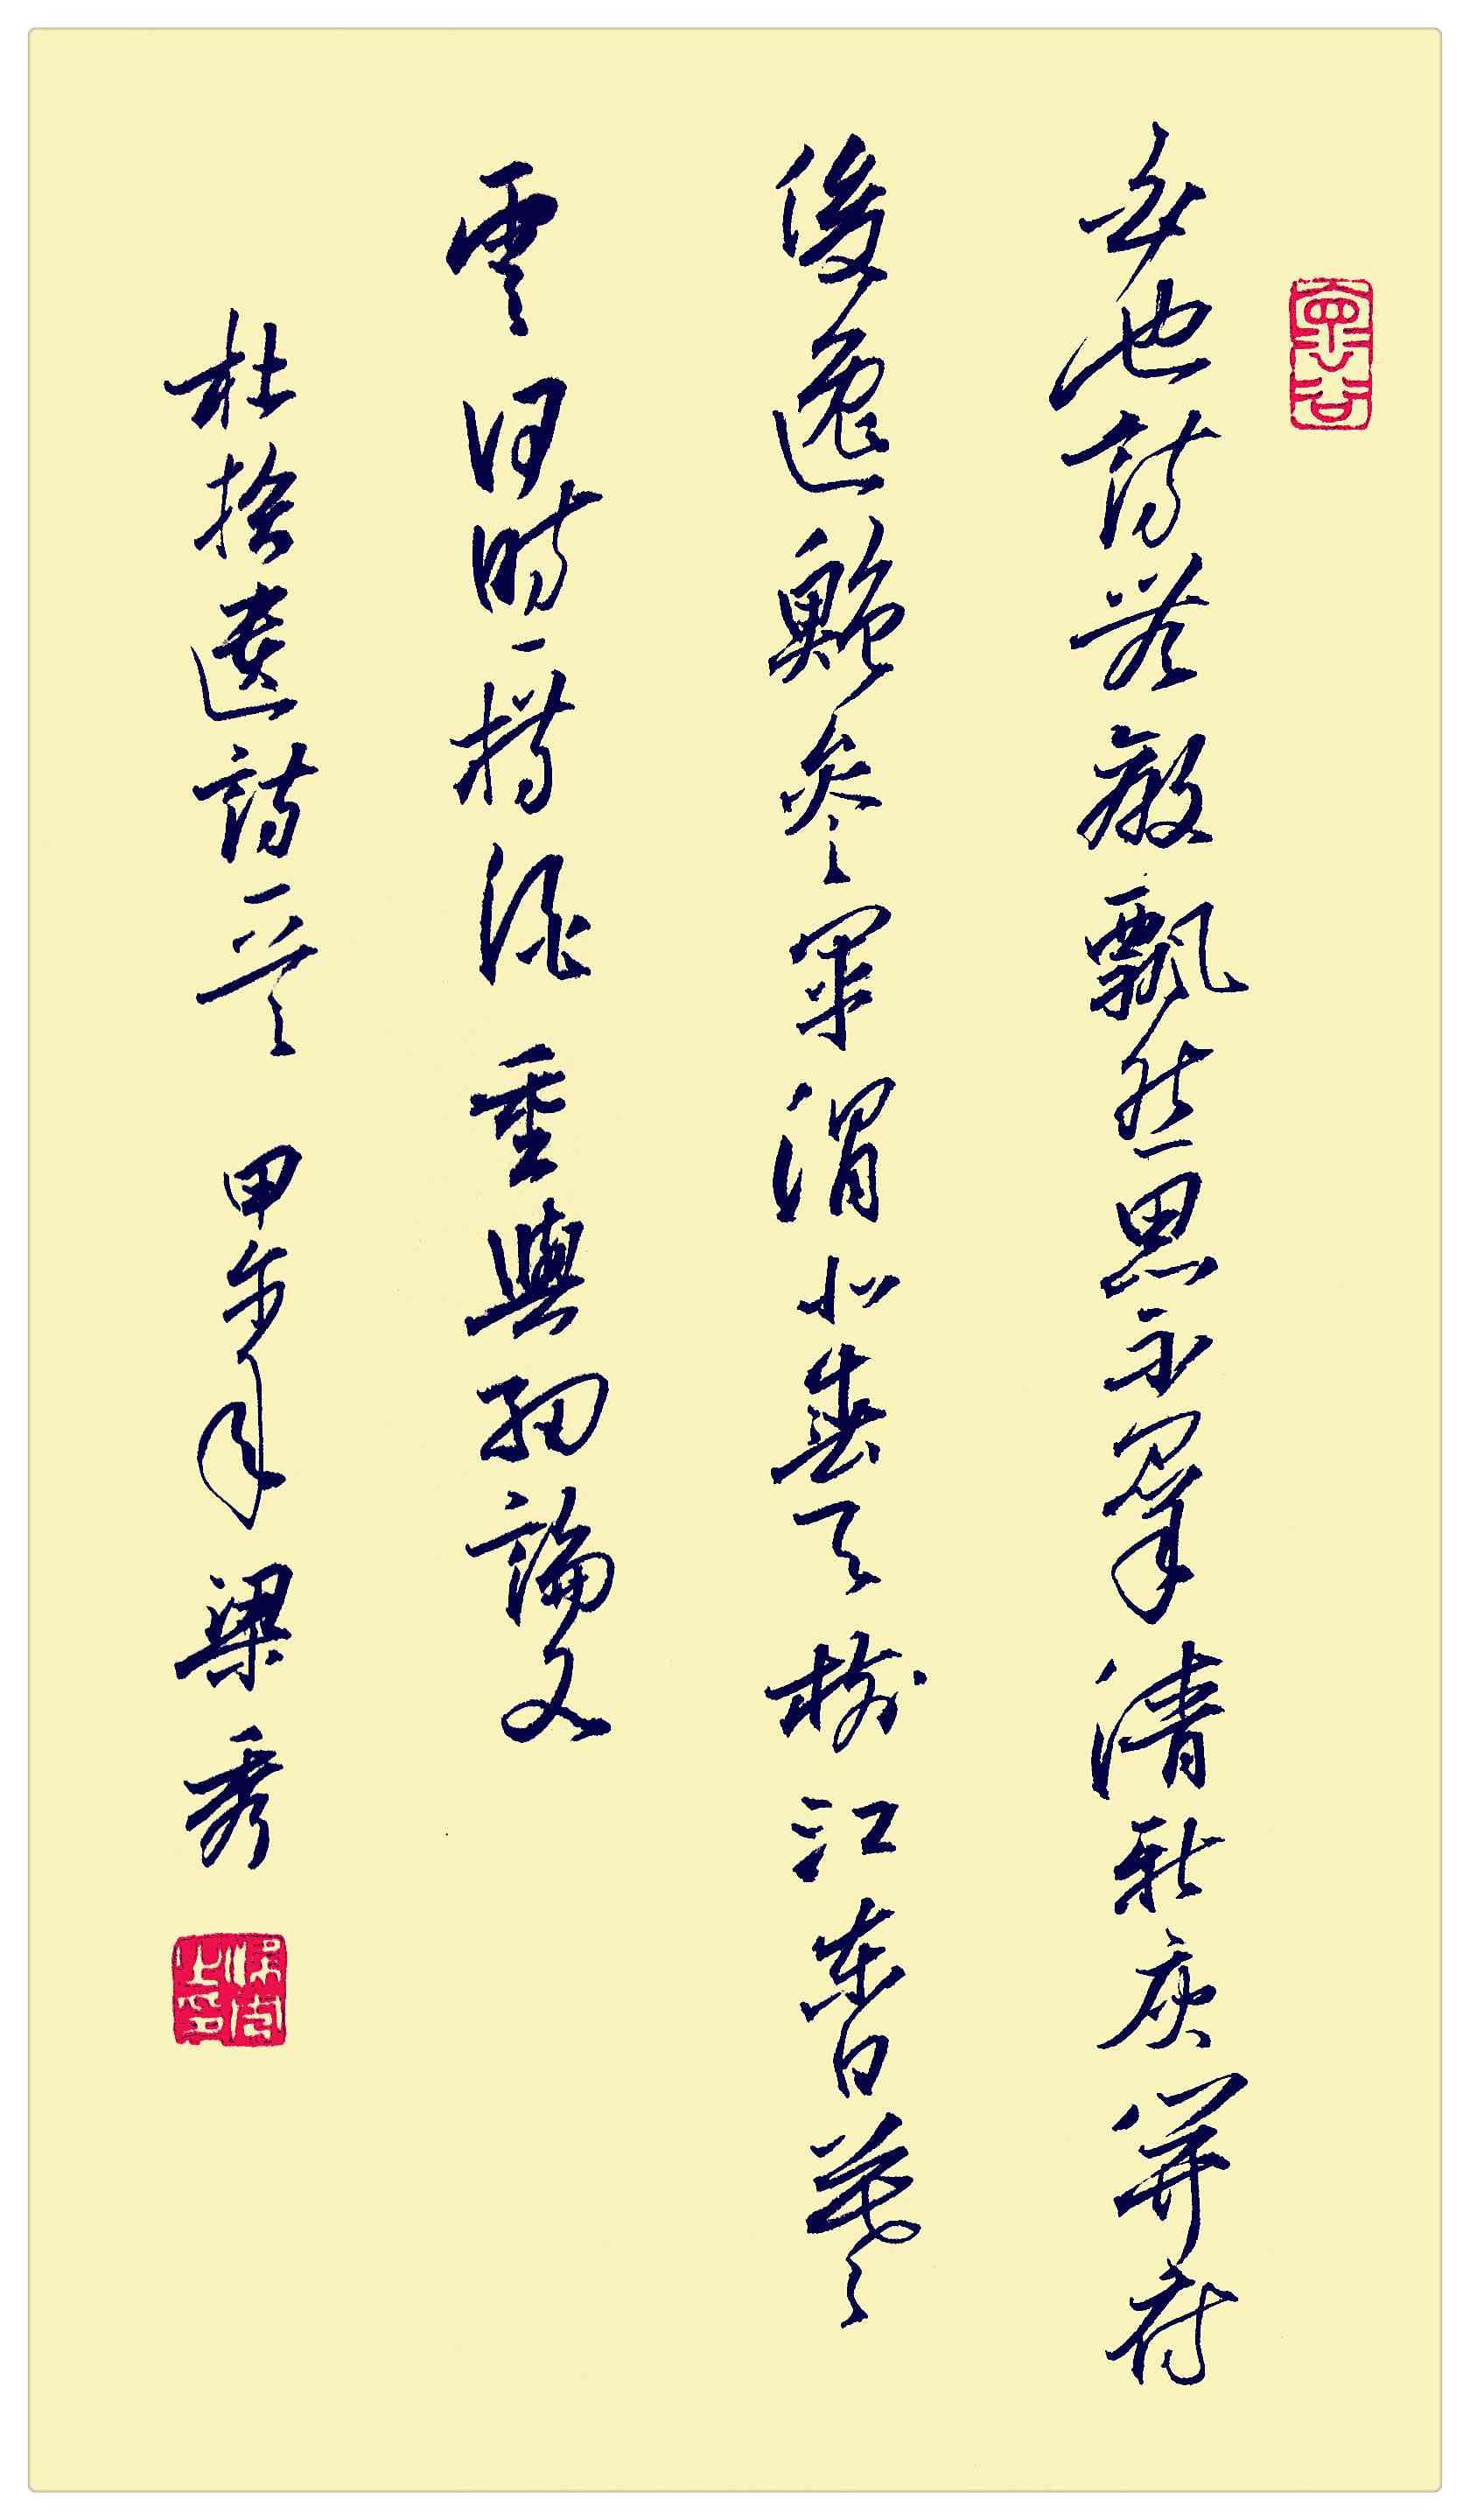 也詩無敵飄然思不羣清新庾開府
俊逸鮑參軍渭北春天樹江東日暮
雲何時一樽酒重與細論文
杜拾遺詩一首 甲午年 梁秀